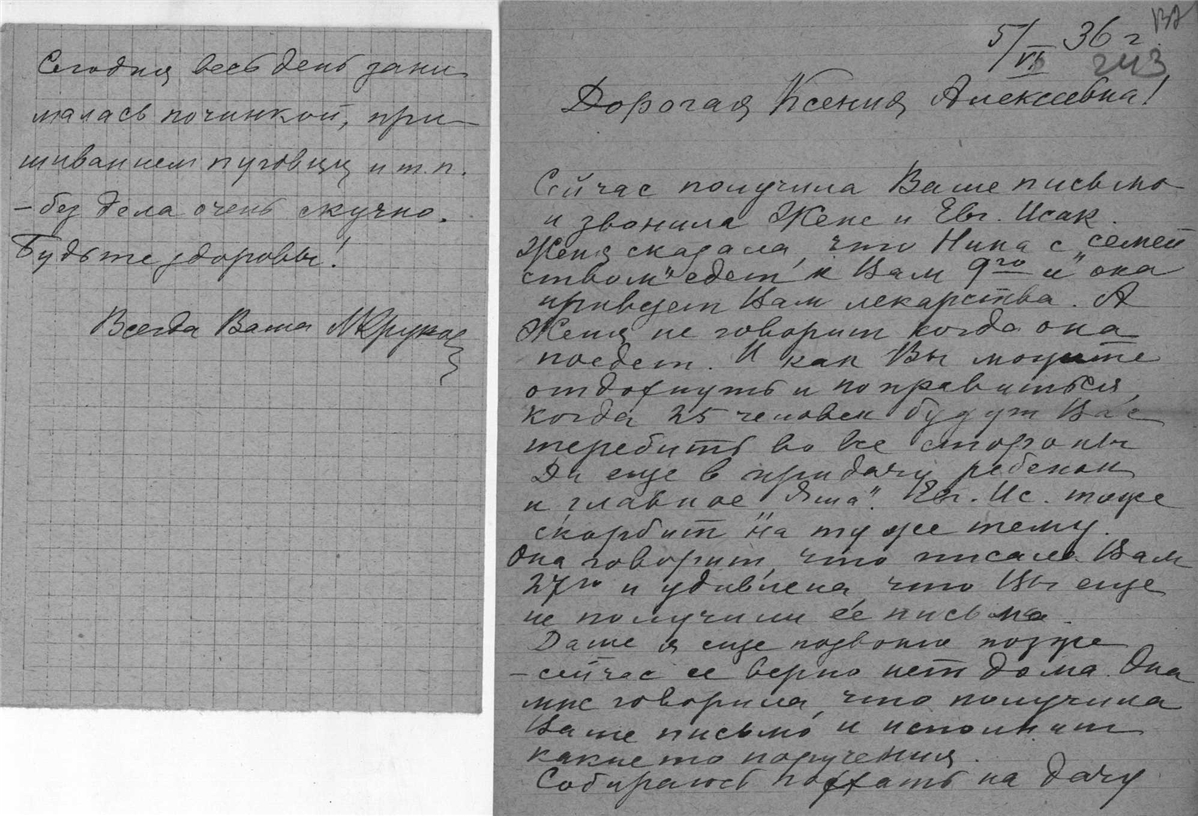 Сегодня весь день зани
малась починкой, при
шиванием пуговиц и т.п.
– без дела очень скучно.
Будьте здоровы!
Всегда Ваша
5/VI 36 г.
243
Дорогая Ксения Алексеевна!
Сейчас получила Ваше письмо
и звонила Жене и Евг. Исак.
Женя сказала, что Нина с „семей
ством" едет к Вам 9го и она
привезет Вам лекарства. А
Женя не говорит когда она
поедет. И как Вы можете
отдохнуть и поправиться,
когда 25 человек будут Вас
теребить во все стороны
Да еще в придачу ребенок
и главное „Яша". Евг. Ис. тоже
скорбит на ту же тему.
Она говорит, что писала Вам
27го и удивлена, что Вы еще
не получили ее письма.
Даше я еще позвоню позже
– сейчас ее верно нет дома. Она
мне говорила, что получила
Ваше письмо и исполнит
какие то поручения.
Собираюсь поехать на дачу